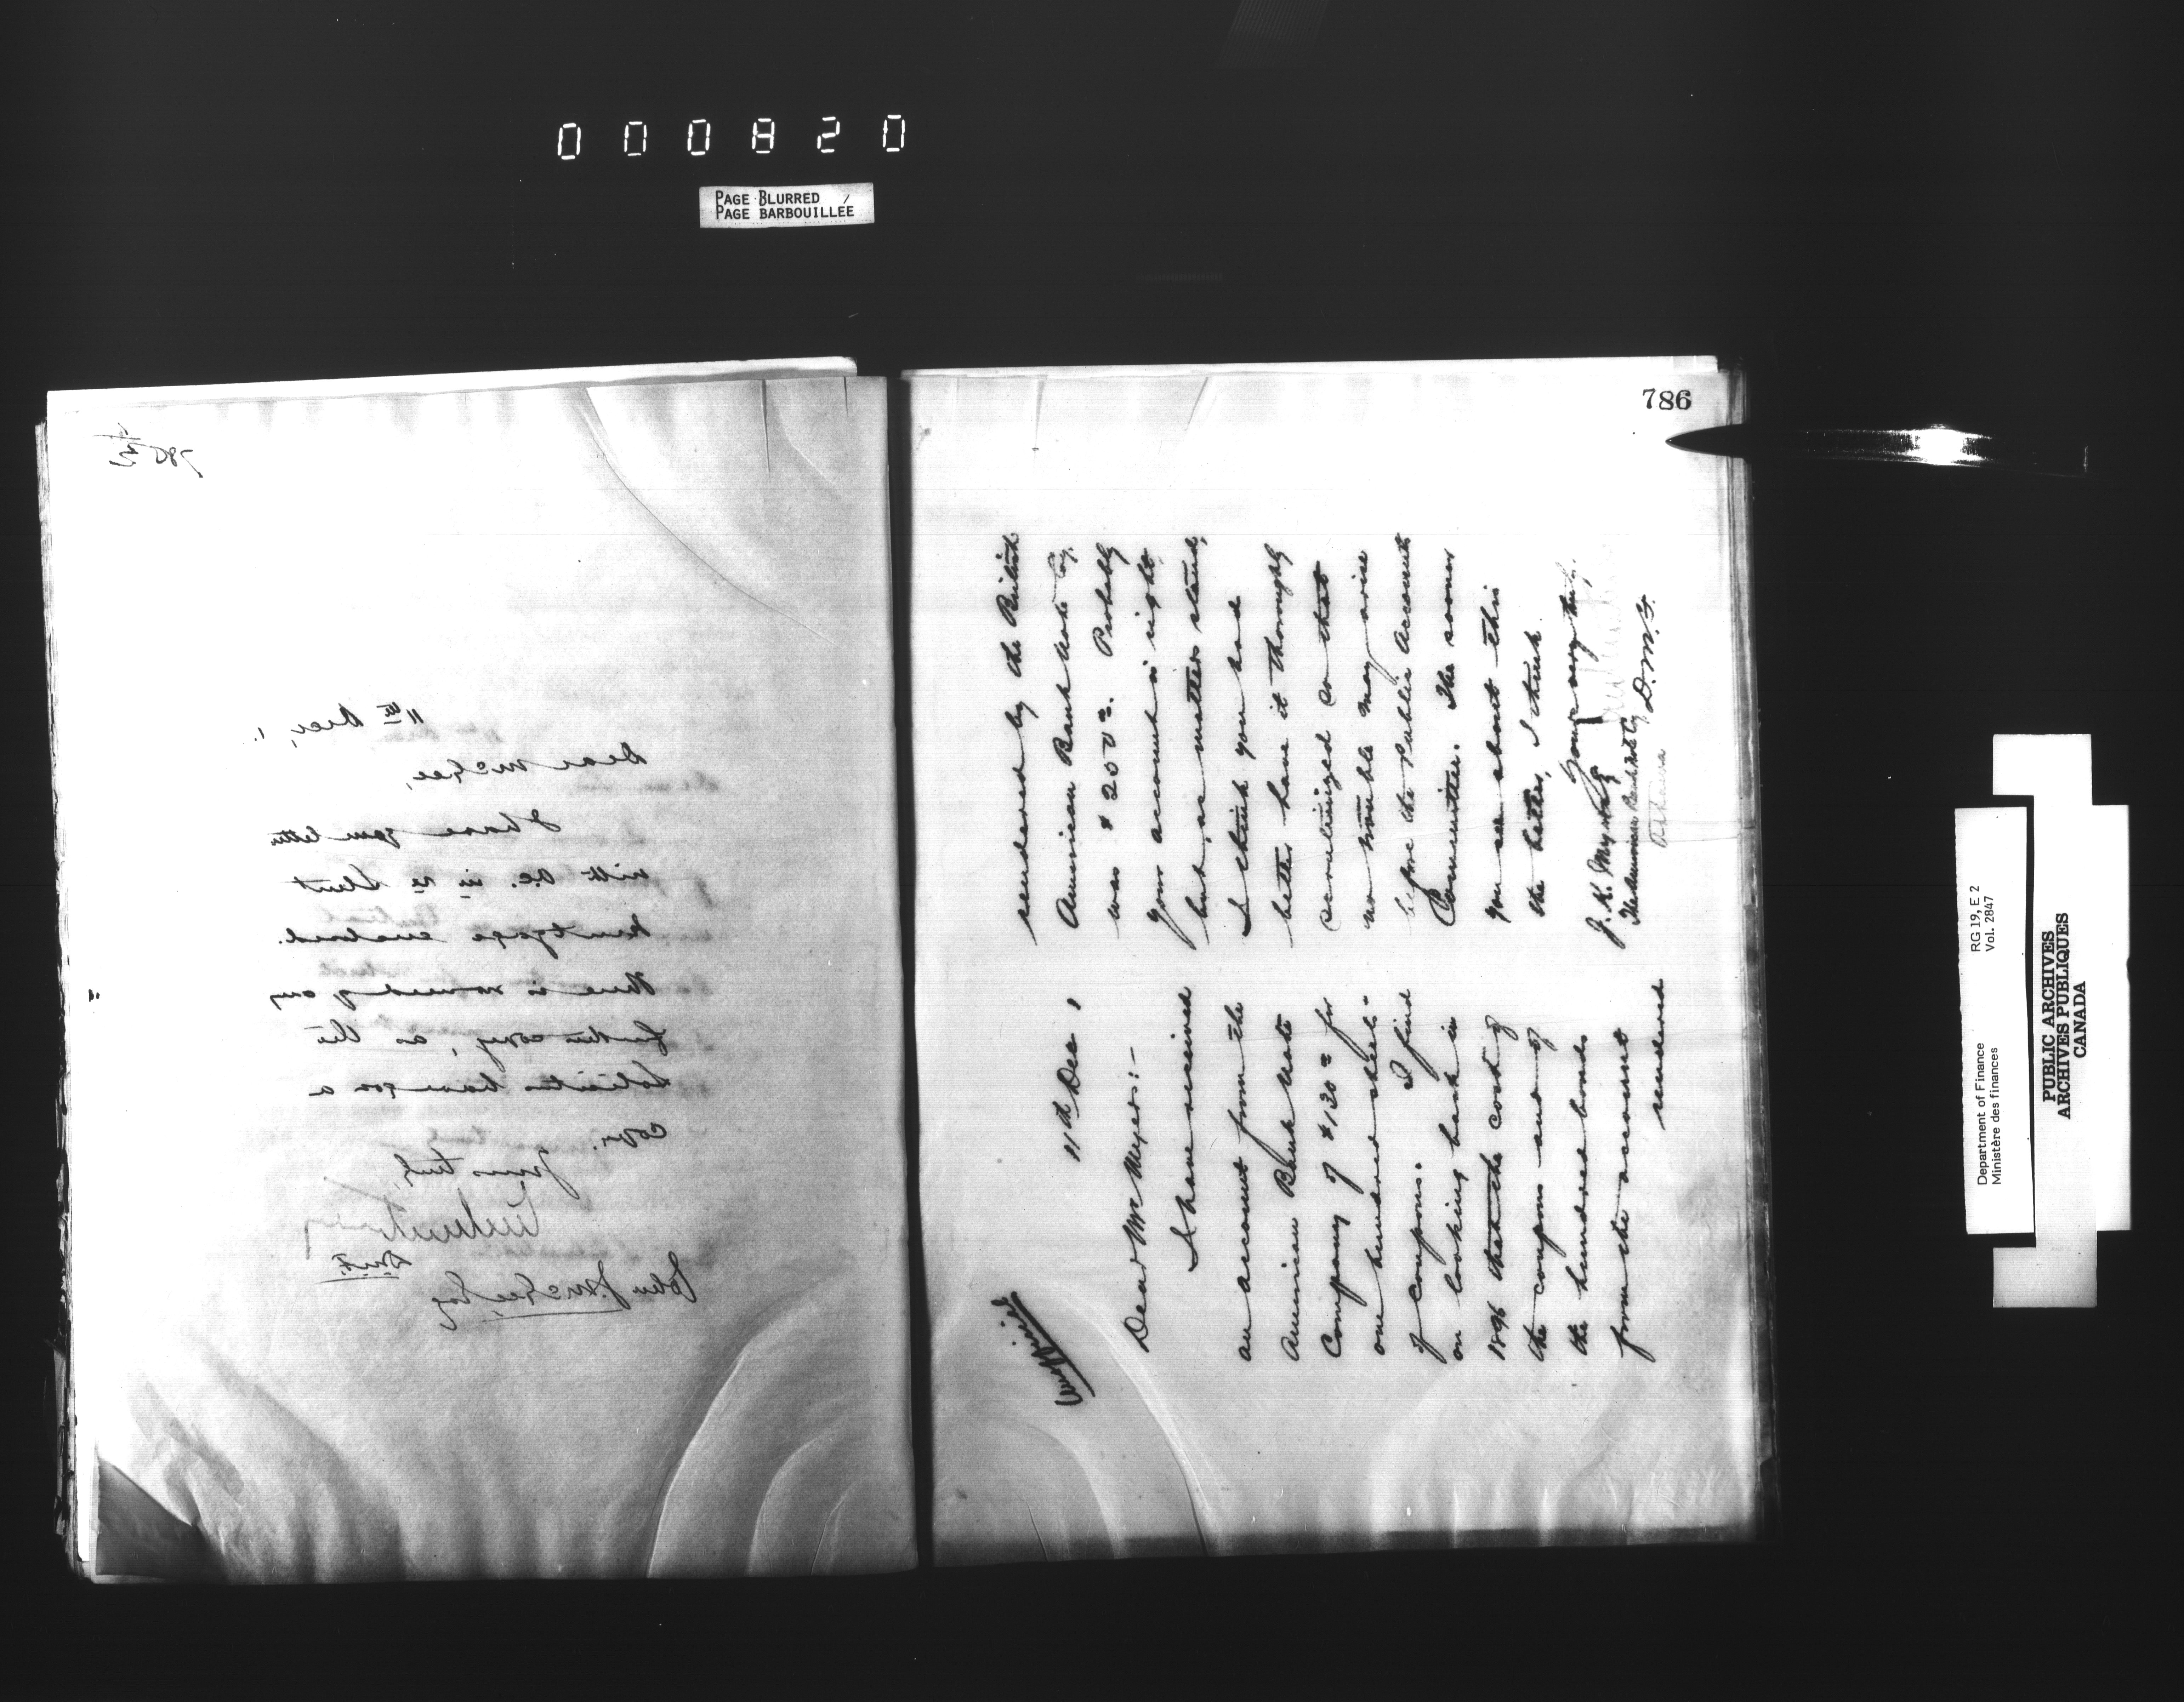 000820
PAGE BLURRED
PAGE BARBOUILLÉE
11th Decr, 1.
Dear McGee,
I have your letter
with O.C. in re
mortgage enclosed.
There is no need of any
further copy, as the
Solicitor have got a
copy.
Yours truly
D.M.F.
John J. McGee, Esq
786
Unofficial
11th Dec 1
Dear Mr Myers:-
I have received
an account from the
American Bank Note
Company of $130 00 for
one hundred sheets
of coupons. I find
on looking back in
1896 that the cost of
the coupons and of
the hundred bonds
from the account
rendered
rendered by the British
American Bank Note Coy.
was $200 00. Probably
your account is right,
but, as matters stand,
I think you had
better have it thoroughly
scrutinized so that
no trouble may arise
before the Public Accounts
Committee. The sooner
you see about this
the better, I think.
Yours very truly,
D.M.F.
J. K. Myers Esq
The American Bank Note Coy
Ottawa
Department of Finance
Ministère des finances
RG 19, E 2
Vol. 2847
PUBLIC ARCHIVES
ARCHIVES PUBLIQUES
CANADA